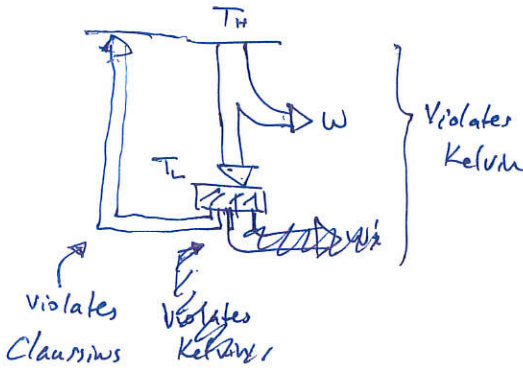 T_H
W
Violates
Kelvin
T_L
violates
Claussius
Violates
Kelvin